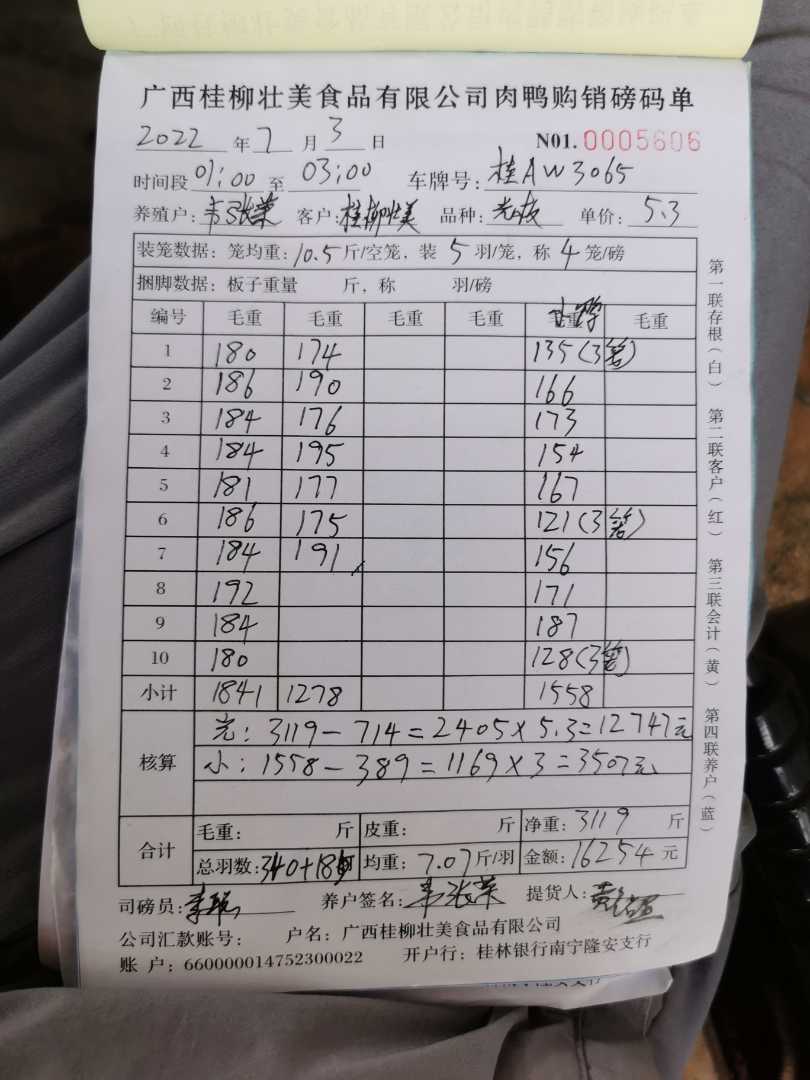 广西桂柳壮美食品有限公司肉鸭购销磅码单
2022 年 7 月 3 日 N01. 0005606
时间段 01:00 至 03:00 车牌号: 桂AW3065
养殖户: 韦张荣 客户: 桂柳壮美 品种: 单价: 5.3
装笼数据: 笼均重: 10.5 斤/空笼, 装 5 羽/笼, 称 4 笼/磅
捆脚数据: 板子重量 斤, 称 羽/磅
编号 毛重 毛重 毛重 毛重 毛重 毛重
1 180 174 135(3笼)
2 186 190 166
3 184 176 173
4 184 195 154
5 181 177 167
6 186 175 121(3笼)
7 184 191 156
8 192 171
9 184 187
10 180 128(3笼)
小计 1841 1278 1558
核算
光: 3119-714=2405×5.3=12747元
小: 1558-389=1169×3=3507元
合计 毛重: 斤 皮重: 斤 净重: 3119 斤
总羽数: 340+185 均重: 7.07 斤/羽 金额: 16254 元
司磅员: 养户签名: 韦张荣 提货人:
公司汇款账号: 户名: 广西桂柳壮美食品有限公司
账 户: 660000014752300022 开户行: 桂林银行南宁隆安支行
第一联存根(白) 第二联客户(红) 第三联会计(黄) 第四联养户(蓝)